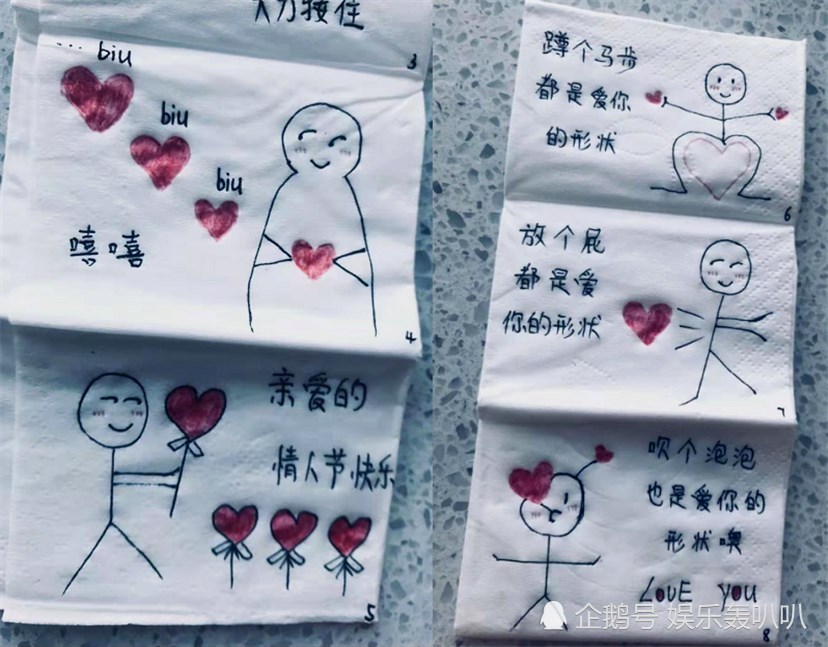 大力接住
3
... biu
biu
biu
嘻嘻
4
亲爱的
情人节快乐
5
蹲个马步
都是爱你
的形状
6
放个屁
都是爱
你的形状
7
吹个泡泡
也是爱你的
形状噢
LOVE YOU
8
企鹅号 娱乐轰叭叭